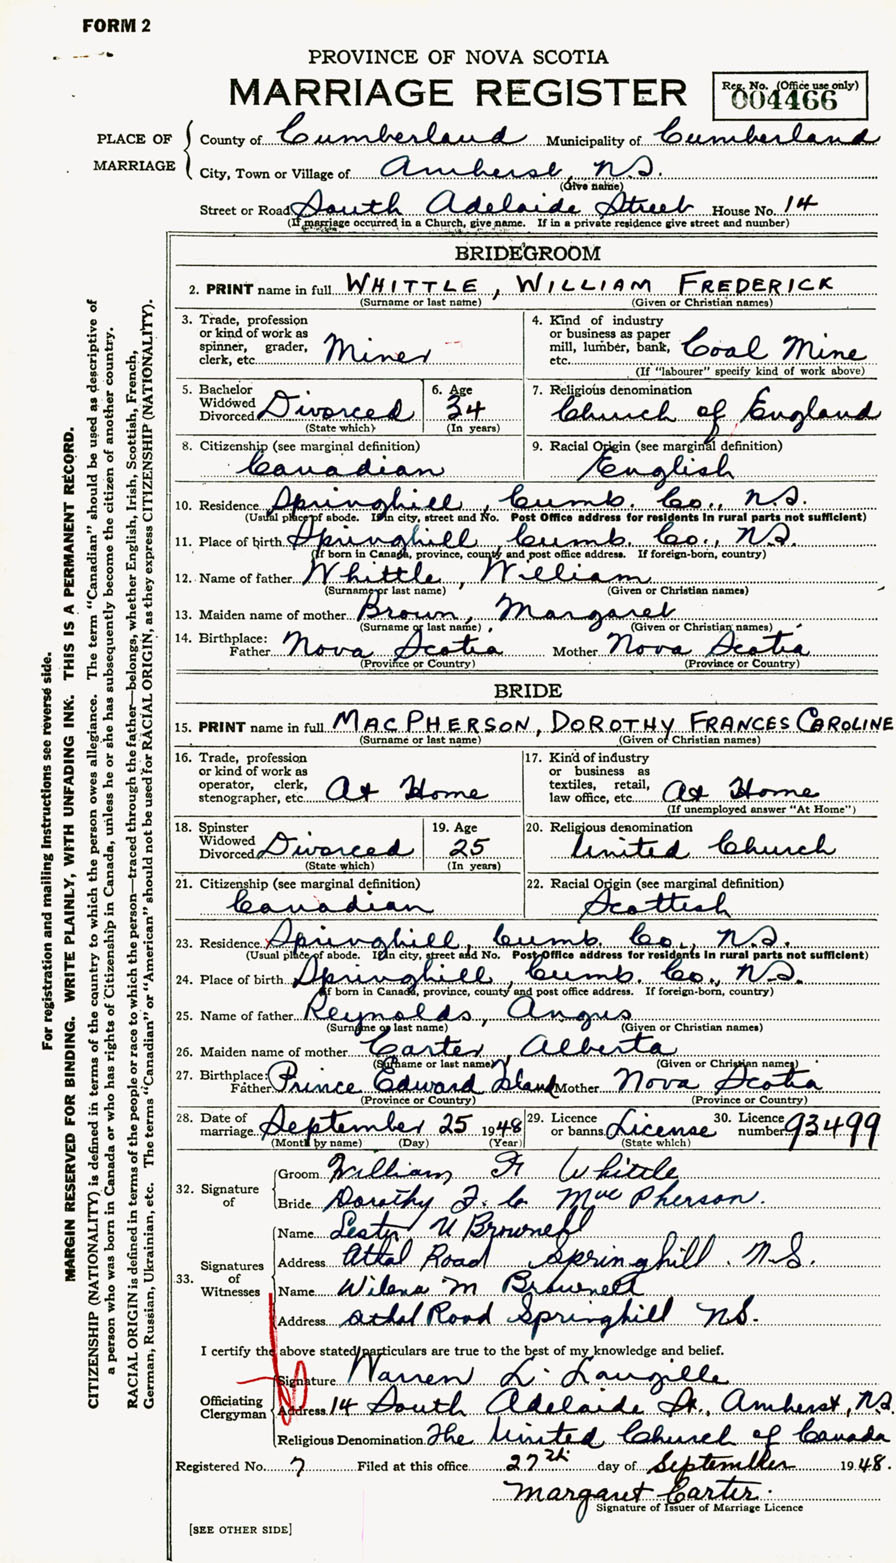 FORM 2
PROVINCE OF NOVA SCOTIA
MARRIAGE REGISTER
Reg. No. (Office use only)
004466
PLACE OF MARRIAGE
County of Cumberland Municipality of Cumberland
City, Town or Village of Amherst, N.S.
(Give name)
Street or Road South Adelaide Street House No. 14
(If marriage occurred in a Church, give name. If in a private residence give street and number)
BRIDEGROOM
2. PRINT name in full WHITTLE, WILLIAM FREDERICK
(Surname or last name) (Given or Christian names)
3. Trade, profession or kind of work as spinner, grader, clerk, etc. Miner
4. Kind of industry or business as paper mill, lumber, bank, etc. Coal Mine
(If "labourer" specify kind of work above)
5. Bachelor Widowed Divorced Divorced
(State which)
6. Age 34
(In years)
7. Religious denomination
Church of England
8. Citizenship (see marginal definition)
Canadian
9. Racial Origin (see marginal definition)
English
10. Residence Springhill, Cumb. Co., N.S.
(Usual place of abode. If in city, street and No. Post Office address for residents in rural parts not sufficient)
11. Place of birth Springhill Cumb. Co., N.S.
(If born in Canada, province, county and post office address. If foreign-born, country)
12. Name of father Whittle, William
(Surname or last name) (Given or Christian names)
13. Maiden name of mother Brown, Margaret
(Surname or last name) (Given or Christian names)
14. Birthplace:
Father Nova Scotia Mother Nova Scotia
(Province or Country) (Province or Country)
BRIDE
15. PRINT name in full MACPHERSON, DOROTHY FRANCES CAROLINE
(Surname or last name) (Given or Christian names)
16. Trade, profession or kind of work as operator, clerk, stenographer, etc. At Home
17. Kind of industry or business as textiles, retail, law office, etc. At Home
(If unemployed answer "At Home")
18. Spinster Widowed Divorced Divorced
(State which)
19. Age 25
(In years)
20. Religious denomination
United Church
21. Citizenship (see marginal definition)
Canadian
22. Racial Origin (see marginal definition)
Scottish
23. Residence Springhill, Cumb. Co., N.S.
(Usual place of abode. If in city, street and No. Post Office address for residents in rural parts not sufficient)
24. Place of birth Springhill, Cumb. Co., N.S.
(If born in Canada, province, county and post office address. If foreign-born, country)
25. Name of father Reynolds, Angus
(Surname or last name) (Given or Christian names)
26. Maiden name of mother Carter, Alberta
(Surname or last name) (Given or Christian names)
27. Birthplace:
Father Prince Edward Island Mother Nova Scotia
(Province or Country) (Province or Country)
28. Date of marriage September 25 1948
(Month by name) (Day) (Year)
29. Licence or banns License
(State which)
30. Licence number 93499
32. Signature of
Groom William F Whittle
Bride Dorothy F. C. MacPherson.
33. Signatures of Witnesses
Name Lester U Brownell
Address Athol Road Springhill. N.S.
Name Wilena M Brownell
Address Athol Road Springhill N.S.
I certify the above stated particulars are true to the best of my knowledge and belief.
Officiating Clergyman
Signature Warren L. Langille
Address 14 South Adelaide St., Amherst, N.S.
Religious Denomination The United Church of Canada
Registered No. 7 Filed at this office 27th day of September 1948.
Margaret Carter.
Signature of Issuer of Marriage Licence
[SEE OTHER SIDE]
For registration and mailing instructions see reverse side.
MARGIN RESERVED FOR BINDING. WRITE PLAINLY, WITH UNFADING INK. THIS IS A PERMANENT RECORD.
CITIZENSHIP (NATIONALITY) is defined in terms of the country to which the person owes allegiance. The term "Canadian" should be used as descriptive of
a person who was born in Canada or who has rights of Citizenship in Canada, unless he or she has subsequently become the citizen of another country.
RACIAL ORIGIN is defined in terms of the people or race to which the person—traced through the father—belongs, whether English, Irish, Scottish, French,
German, Russian, Ukrainian, etc. The terms "Canadian" or "American" should not be used for RACIAL ORIGIN, as they express CITIZENSHIP (NATIONALITY).